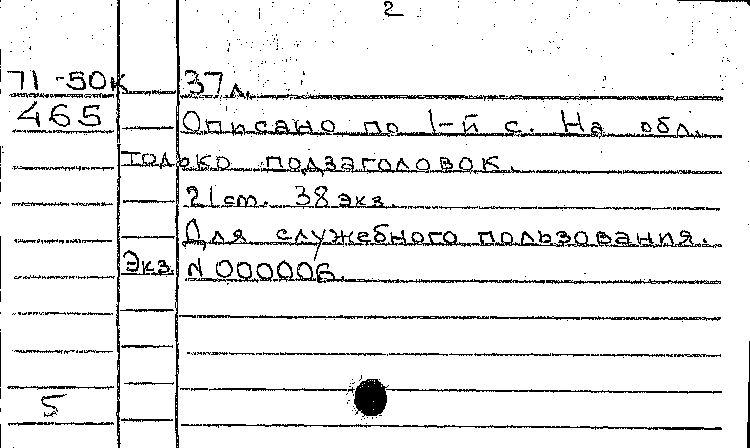 2
71-50к 37л.
465 Описано по 1-й с. На обл.
только подзаголовок.
21 см. 38 экз.
Для служебного пользования.
Экз. N 000006.
5